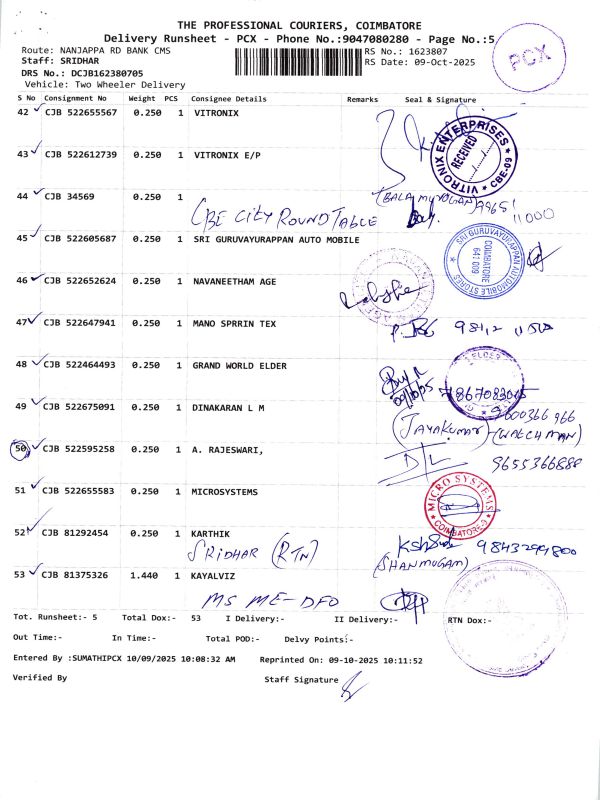 THE PROFESSIONAL COURIERS, COIMBATORE
Delivery Runsheet - PCX - Phone No.:9047080280 - Page No.:5
Route: NANJAPPA RD BANK CMS
RS No.: 1623807
PCX
Staff: SRIDHAR
RS Date: 09-Oct-2025
DRS No.: DCJB162380705
Vehicle: Two Wheeler Delivery
S No Consignment No Weight PCS Consignee Details Remarks Seal & Signature
42 CJB 522655567 0.250 1 VITRONIX
VITRONIX ENTERPRISES RECEIVED CBE-09
43 CJB 522612739 0.250 1 VITRONIX E/P
44 CJB 34569 0.250 1
(BALAMUROGAN) 99651
CBE CITY ROUND TABLE
11000
45 CJB 522605687 0.250 1 SRI GURUVAYURAPPAN AUTO MOBILE
SRI GURUVAYURAPPAN AUTOMOBILE STORES COIMBATORE 641 009
46 CJB 522652624 0.250 1 NAVANEETHAM AGE
47 CJB 522647941 0.250 1 MANO SPRRIN TEX
48 CJB 522464493 0.250 1 GRAND WORLD ELDER
ELDER
49 CJB 522675091 0.250 1 DINAKARAN L M
9600366 966
(JAYAKUMAR) (WATCHMAN)
50 CJB 522595258 0.250 1 A. RAJESWARI,
D/L 9655366888
51 CJB 522655583 0.250 1 MICROSYSTEMS
MICRO SYSTEMS COIMBATORE-9
52 CJB 81292454 0.250 1 KARTHIK
SRIDHAR (RTN)
9843299800
(SHANMUGAM)
53 CJB 81375326 1.440 1 KAYALVIZ
MS ME-DFO
Tot. Runsheet:- 5 Total Dox:- 53 I Delivery:- II Delivery:- RTN Dox:-
Out Time:- In Time:- Total POD:- Delvy Points:-
Entered By :SUMATHIPCX 10/09/2025 10:08:32 AM Reprinted On: 09-10-2025 10:11:52
Verified By Staff Signature